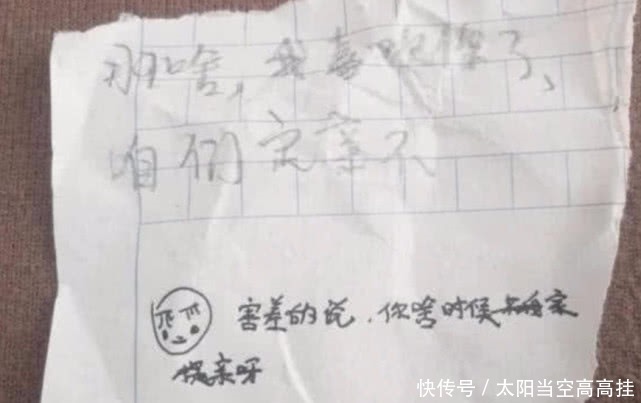 那啥,我喜欢你了、
咱们定亲不
害羞的说.你啥时候来我家
提亲呀
快传号/太阳当空高高挂